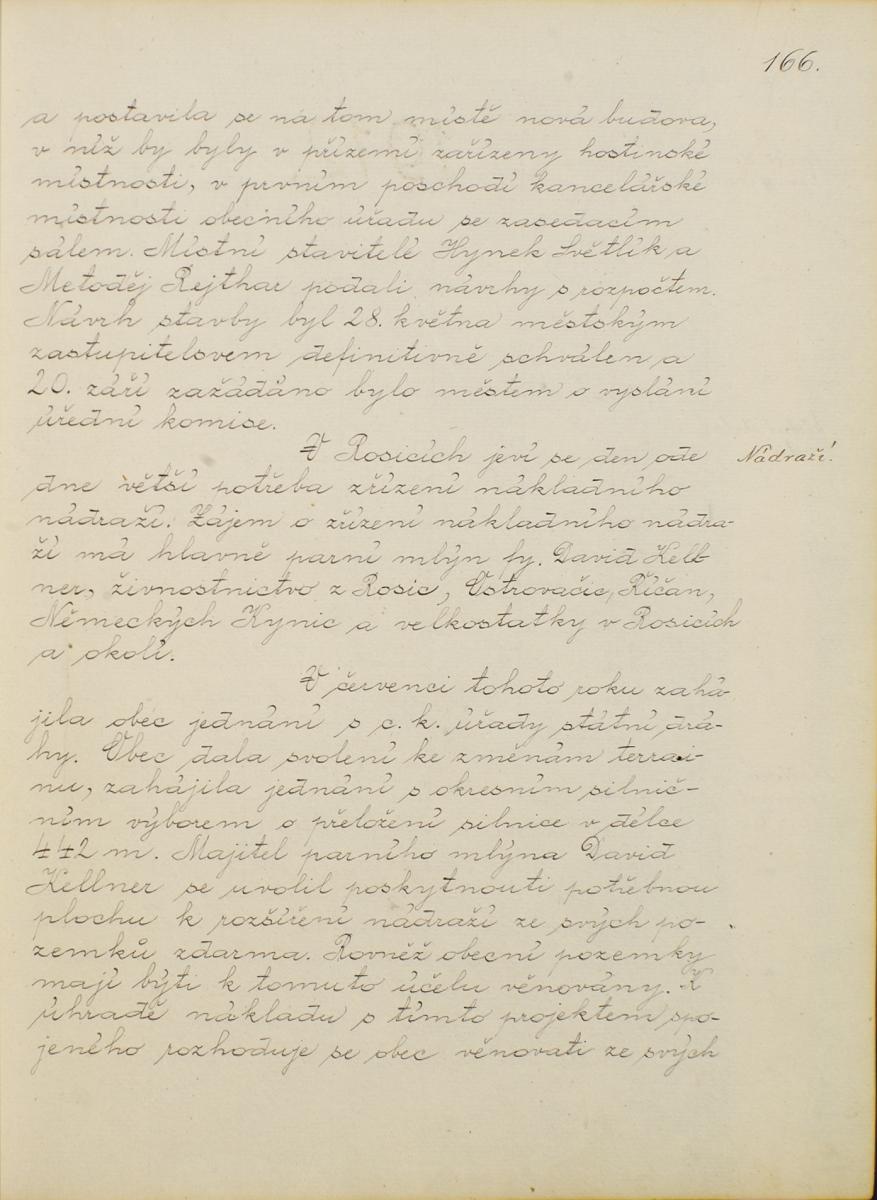 166.
a postavila se na tom místě nová budova,
v níž by byly v přízemí zařízeny hostinské
místnosti, v prvním poschodí kancelářské
místnosti obecního úřadu se zasedacím
sálem. Místní stavitelé Hynek Světlík a
Metoděj Rejthar podali návrhy s rozpočtem.
Návrh stavby byl 28. května městským
zastupitelsvem definitivně schválen a
20. září zažádáno bylo městem o vyslání
úřední komise.
V Rosicích jeví se den ode
Nádraží.
dne větší potřeba zřízení nákladního
nádraží. Zájem o zřízení nákladního nádra-
ží má hlavně parní mlýn fy. David Kell
ner, živnostnictvo z Rosic, Ostrovačic, Říčan,
Německých Kynic a velkostatky v Rosicích
a okolí.
V červenci tohoto roku zahá-
jila obec jednání s c. k. úřady státní drá-
hy. Obec dala svolení ke změnám terrai-
nu, zahájila jednání s okresním silnič-
ním výborem o přeložení silnice v délce
442 m. Majitel parního mlýna David
Kellner se uvolil poskytnouti potřebnou
plochu k rozšíření nádraží ze svých po-
zemků zdarma. Rovněž obecní pozemky
mají býti k tomuto účelu věnovány. K
úhradě nákladu s tímto projektem spo-
jeného rozhoduje se obec věnovati ze svých